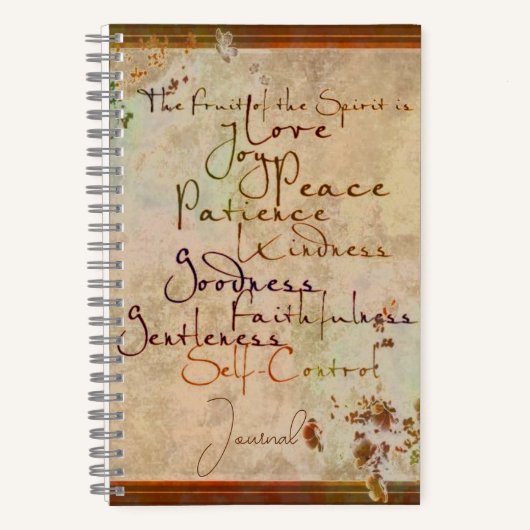 The Fruit of the Spirit is
Love
Joy
Peace
Patience
Kindness
Goodness
Faithfulness
Gentleness
Self-Control
Journal